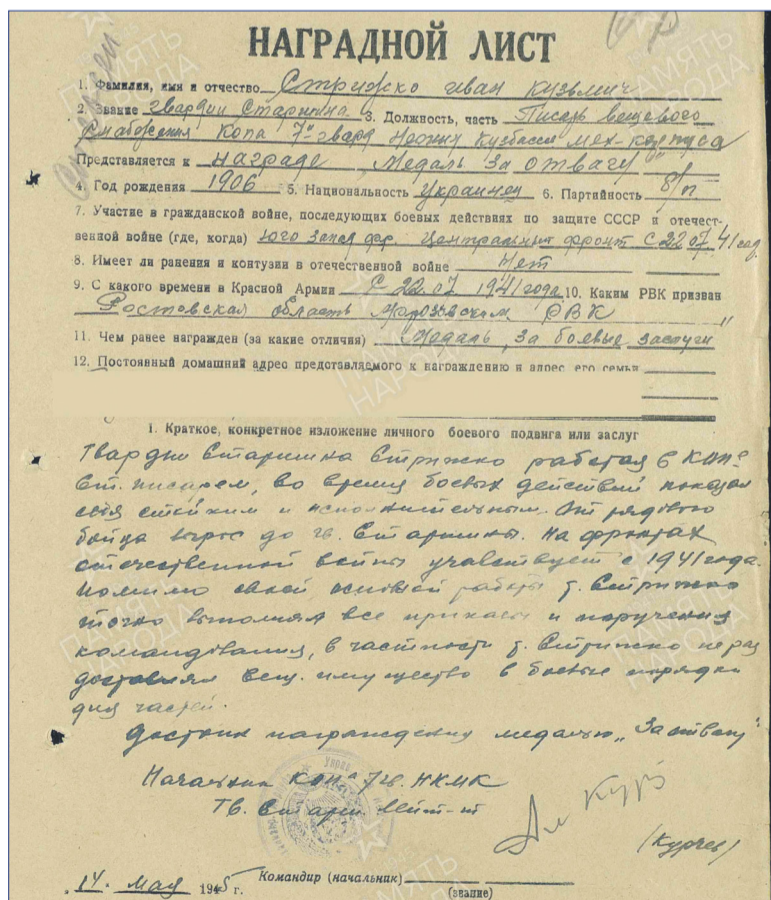 НАГРАДНОЙ ЛИСТ
1. Фамилия, имя и отчество Стрижко Иван Кузьмич
2. Звание гвардии Старшина 3. Должность, часть Писарь вещевого
снабжения Копа 7й гвард Нежин Кузбасск мех-корпуса
Представляется к награде „Медаль За отвагу"
4. Год рождения 1906 5. Национальность Украинец 6. Партийность б/п
7. Участие в гражданской войне, последующих боевых действиях по защите СССР и отечест-
венной войне (где, когда) Юго Запад фр. Центральный фронт с 22 07 41 год
8. Имеет ли ранения и контузии в отечественной войне Нет
9. С какого времени в Красной Армии С 22.07 1941 года 10. Каким РВК призван
Ростовская область Морозовским РВК
11. Чем ранее награжден (за какие отличия) Медаль „За боевые заслуги"
12. Постоянный домашний адрес представляемого к награждению и адрес его семьи
1. Краткое, конкретное изложение личного боевого подвига или заслуг
Гвардии Старшина Стрижко работая в КОПе
Ст. писарем, во время боевых действий показал
себя стойким и исполнительным. От рядового
бойца вырос до гв. Старшины. На фронтах
отечественной войны участвует с 1941 года.
Помимо своей основной работы т. Стрижко
точно выполнял все приказы и поручения
командования, в частности т. Стрижко не раз
доставлял вещ. имущество в боевые порядки
для частей.
Достоин награждения медалью „За отвагу"
Начальник КОПа 7 гв. НКМК
Гв. Старш Лейт-нт
(Курчев)
„14" мая 1945 г. Командир (начальник)
(звание)
ПАМЯТЬ
НАРОДА